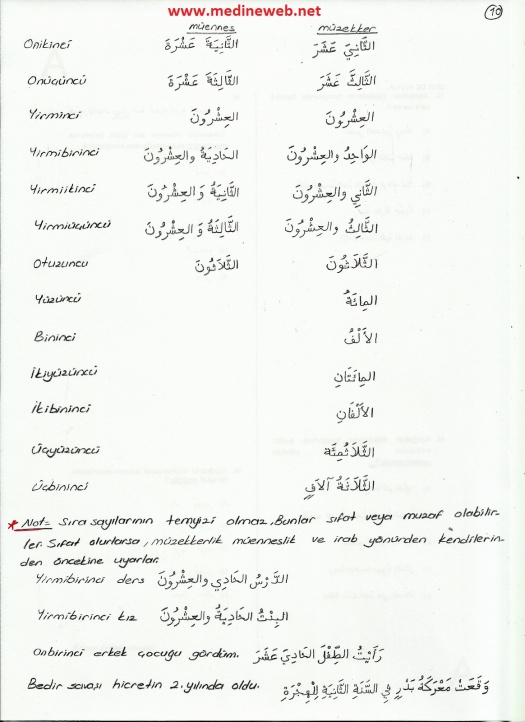 www.medineweb.net
10
müennes müzekker
Onikinci الثَّانِيَةَ عَشْرَةَ الثَّانِيَ عَشَرَ
Onüçüncü الثَّالِثَةَ عَشْرَةَ الثَّالِثَ عَشَرَ
Yirminci العِشْرُونَ العِشْرُونَ
Yirmibirinci الحَادِيَةُ والعِشْرُونَ الوَاحِدُ والعِشْرُونَ
Yirmiikinci الثَّانِيَةُ وَ العِشْرُونَ الثَّانِي والعِشْرُونَ
Yirmiüçüncü الثَّالِثَةُ وَ العِشْرُونَ الثَّالِثُ والعِشْرُونَ
Otuzuncu الثَّلَاثُونَ الثَّلَاثُونَ
Yüzüncü المِائَةُ
Bininci الأَلْفُ
İkiyüzüncü المِائَتَانِ
İkibininci الأَلْفَانِ
Üçyüzüncü الثَّلَاثُمِئَة
Üçbininci الثَّلَاثَةُ آلَافٍ
* Not= Sıra sayılarının temyizi olmaz. Bunlar sıfat veya muzaf olabilir-
ler. Sıfat olurlarsa, müzekkerlik müenneslik ve irab yönünden kendilerin-
den öncekine uyarlar.
Yirmibirinci ders الدَّرْسُ الحَادِي والعِشْرُونَ
Yirmibirinci kız البِنْتُ الحَادِيَةُ والعِشْرُونَ
Onbirinci erkek çocuğu gördüm. رَأَيْتُ الطِّفْلَ الحَادِيَ عَشَرَ
Bedir savaşı hicretin 2. yılında oldu. وَقَعَتْ مَعْرَكَةُ بَدْرٍ فِي السَّنَةِ الثَّانِيَةِ لِلْهِجْرَةِ